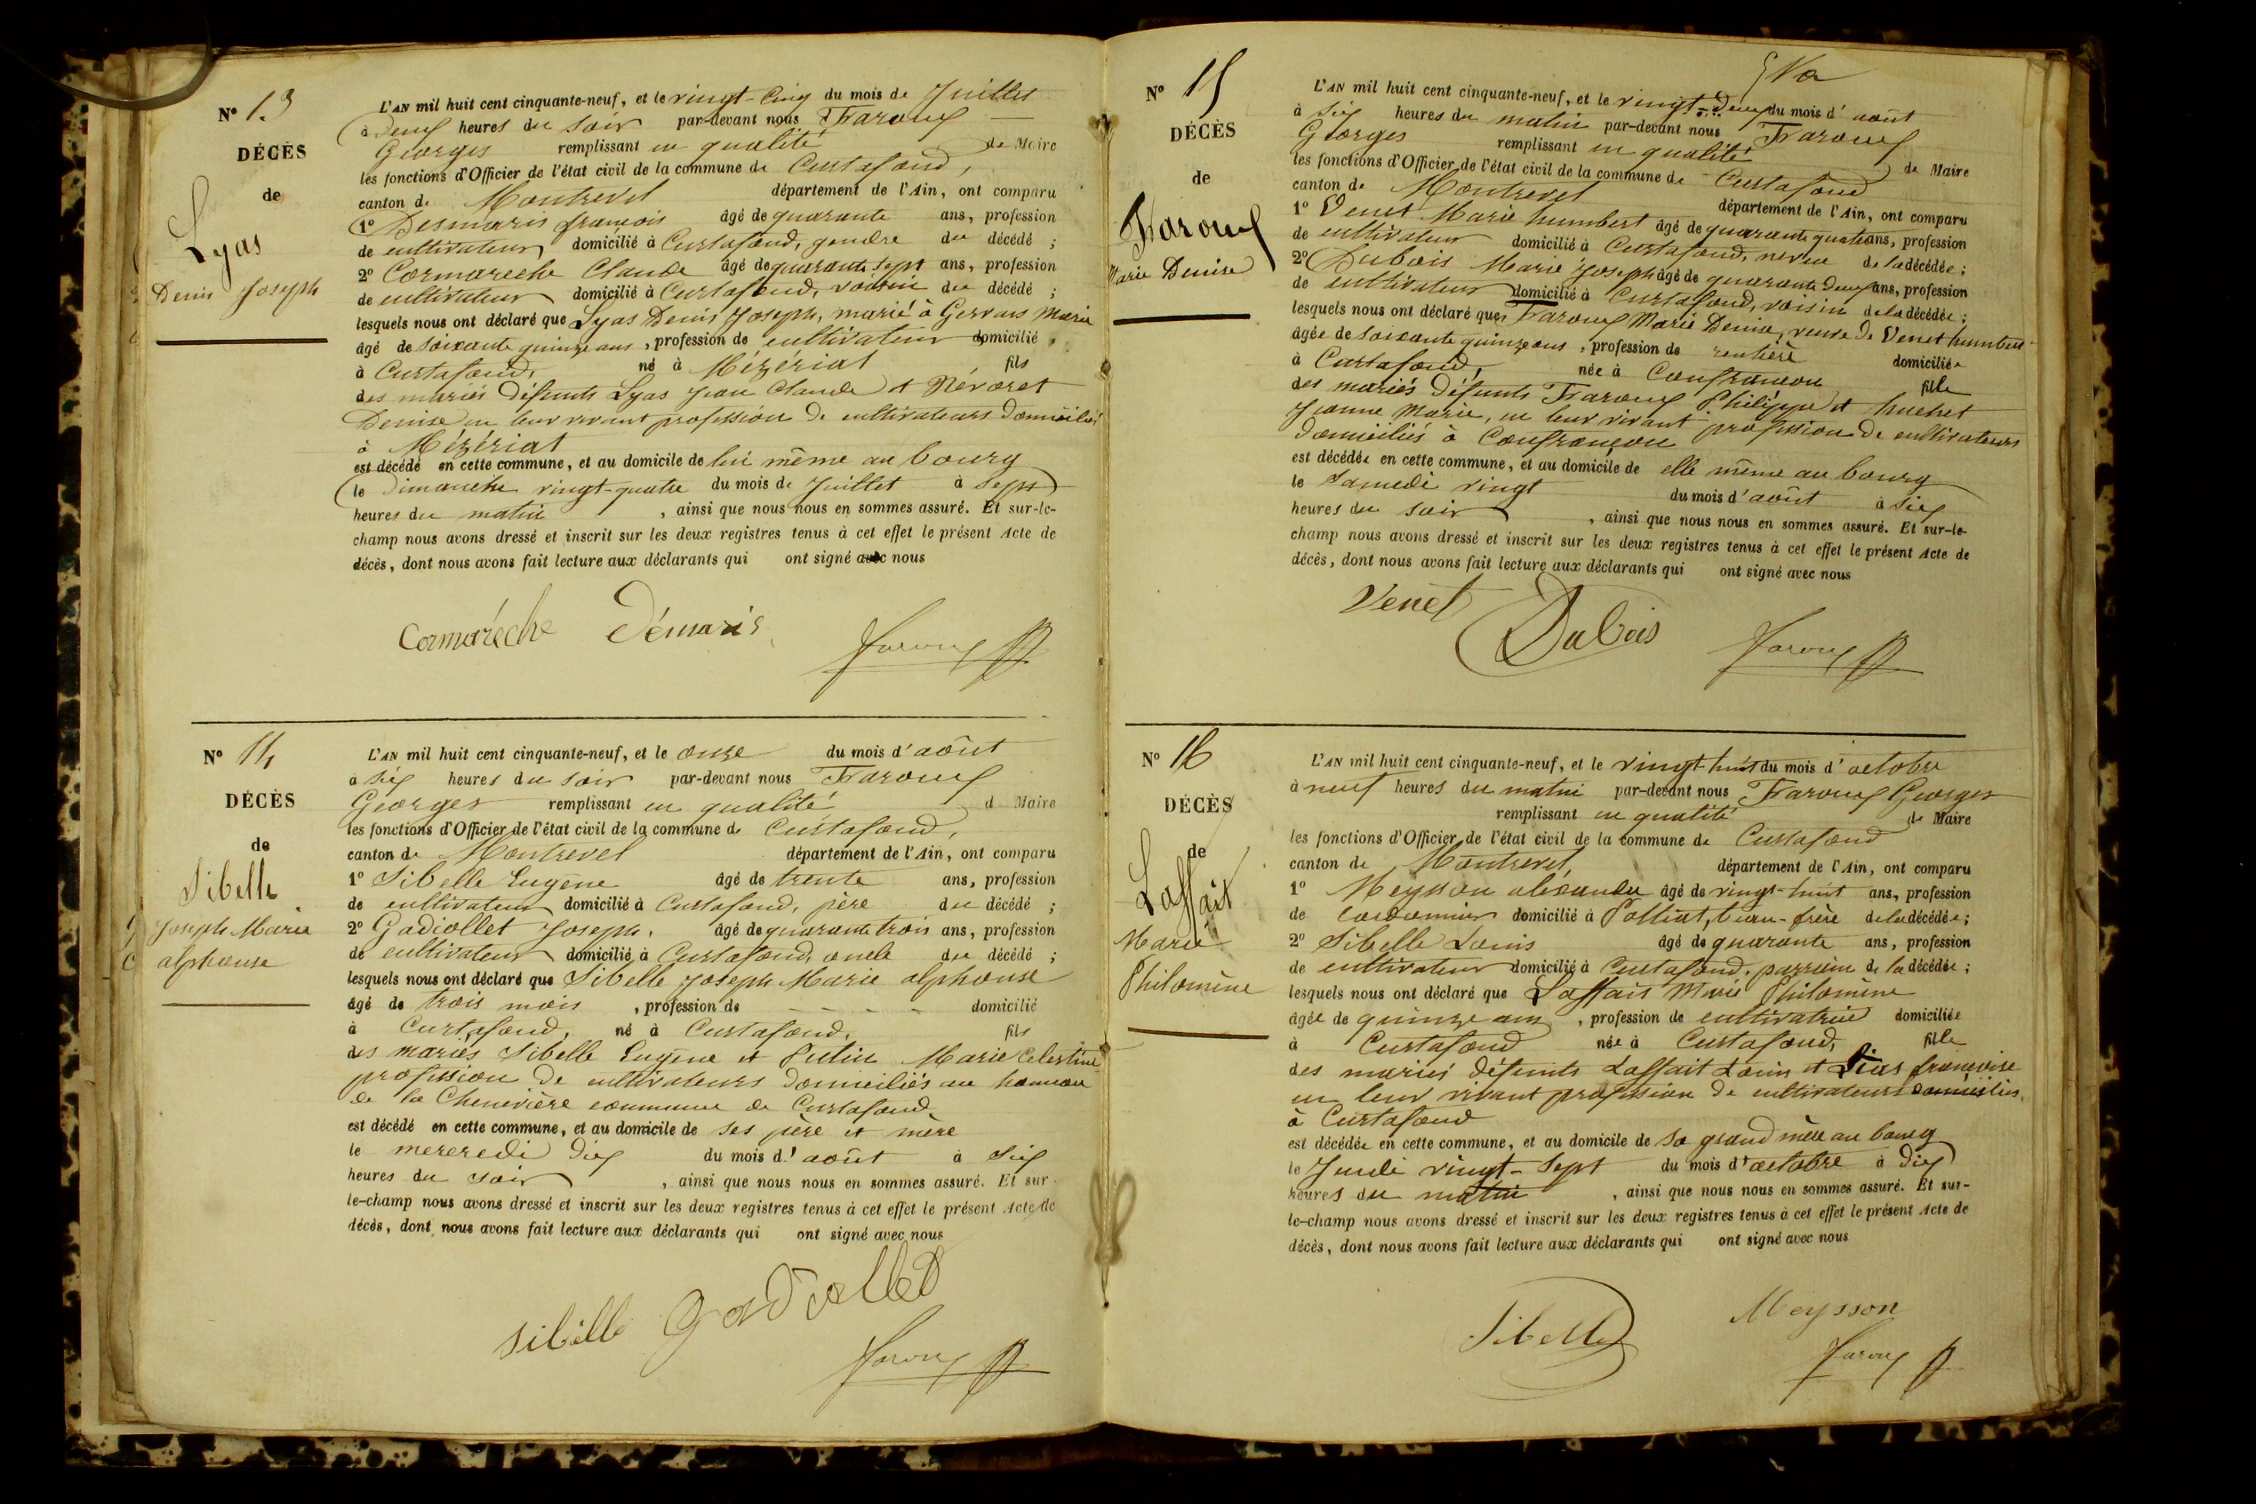 N° 13
DÉCÈS
de
Lyas
Denis Joseph
L'AN mil huit cent cinquante-neuf, et le vingt-cinq du mois de Juillet
à Deux heures du soir par-devant nous Faroux
Georges remplissant en qualité de Maire
les fonctions d'Officier de l'état civil de la commune de Curtafond,
canton de Montrevel département de l'Ain, ont comparu
1° Desmaris françois âgé de quarante ans, profession
de cultivateur domicilié à Curtafond, gendre du décédé ;
2° Cormareche Claude âgé de quarante sept ans, profession
de cultivateur domicilié à Curtafond, voisin du décédé ;
lesquels nous ont déclaré que Lyas Denis Joseph, marié à Gervais Marie
âgé de soixante quinze ans, profession de cultivateur domicilié
à Curtafond, né à Mézériat fils
des mariés défunts Lyas Jean Claude et Névoret
Denise en leur vivant profession de cultivateurs domiciliés
à Mézériat
est décédé en cette commune, et au domicile de lui même au bourg
le Dimanche vingt-quatre du mois de Juillet à sept
heures du matin, ainsi que nous nous en sommes assuré. Et sur-le-
champ nous avons dressé et inscrit sur les deux registres tenus à cet effet le présent Acte de
décès, dont nous avons fait lecture aux déclarants qui ont signé avec nous
Cormaréche Démaris
Faroux
N° 14
DÉCÈS
de
Sibelle
Joseph Marie
alphonse
L'AN mil huit cent cinquante-neuf, et le onze du mois d'août
à six heures du soir par-devant nous Faroux
Georges remplissant en qualité d Maire
les fonctions d'Officier de l'état civil de la commune de Curtafond,
canton de Montrevel département de l'Ain, ont comparu
1° Sibelle Eugène âgé de trente ans, profession
de cultivateur domicilié à Curtafond, père du décédé ;
2° Gadiollet Joseph. âgé de quarante trois ans, profession
de cultivateur domicilié à Curtafond, oncle du décédé ;
lesquels nous ont déclaré que Sibelle Joseph Marie alphonse
âgé de trois mois, profession de - - - - - domicilié
à Curtafond, né à Curtafond, fils
des mariés Sibelle Eugène et Putin Marie Celestine
profession de cultivateurs domiciliés au hameau
de la Chenevière commune de Curtafond
est décédé en cette commune, et au domicile de ses père et mère
le mercredi dix du mois d'août à six
heures du soir, ainsi que nous nous en sommes assuré. Et sur-
le-champ nous avons dressé et inscrit sur les deux registres tenus à cet effet le présent Acte de
décès, dont nous avons fait lecture aux déclarants qui ont signé avec nous
Sibelle Gadiollet
Faroux
N° 15
DÉCÈS
de
Faroux
Marie Denise
L'AN mil huit cent cinquante-neuf, et le vingt-deux du mois d'août
à six heures du matin par-devant nous Faroux
Georges remplissant en qualité de Maire
les fonctions d'Officier de l'état civil de la commune de Curtafond
canton de Montrevel département de l'Ain, ont comparu
1° Venet Marie humbert âgé de quarante quatre ans, profession
de cultivateur domicilié à Curtafond, neveu de la décédée ;
2° Dubois Marie Joseph âgé de quarante deux ans, profession
de cultivateur domicilié à Curtafond, voisin de la décédée ;
lesquels nous ont déclaré que Faroux Marie Denise, veuve de Venet humbert
âgée de soixante quinze ans, profession de rentière domiciliée
à Curtafond, née à Confrançon fille
des mariés défunts Faroux Philippe et huchet
Jeanne Marie, en leur vivant profession de cultivateurs
domiciliés à Confrançon
est décédée en cette commune, et au domicile de elle même au bourg
le samedi vingt du mois d'août à six
heures du soir, ainsi que nous nous en sommes assuré. Et sur-le-
champ nous avons dressé et inscrit sur les deux registres tenus à cet effet le présent Acte de
décès, dont nous avons fait lecture aux déclarants qui ont signé avec nous
Venet Dubois Faroux
N° 16
DÉCÈS
de
Laffait
Marie
Philomène
L'AN mil huit cent cinquante-neuf, et le vingt-huit du mois d'octobre
à neuf heures du matin par-devant nous Faroux Georges
remplissant en qualité de Maire
les fonctions d'Officier de l'état civil de la commune de Curtafond
canton de Montrevel, département de l'Ain, ont comparu
1° Meysson alexandre âgé de vingt-huit ans, profession
de cordonnier domicilié à Polliat, beau-frère de la décédée ;
2° Sibelle Louis âgé de quarante ans, profession
de cultivateur domicilié à Curtafond, parrain de la décédée ;
lesquels nous ont déclaré que Laffait Marie Philomène
âgée de quinze ans, profession de cultivatrice domiciliée
à Curtafond née à Curtafond, fille
des mariés défunts Laffait Louis et Lias françoise
en leur vivant profession de cultivateurs domiciliés
à Curtafond
est décédée en cette commune, et au domicile de sa grand mère au bourg
le Jeudi vingt-sept du mois d'octobre à dix
heures du matin, ainsi que nous nous en sommes assuré. Et sur-
le-champ nous avons dressé et inscrit sur les deux registres tenus à cet effet le présent Acte de
décès, dont nous avons fait lecture aux déclarants qui ont signé avec nous
Sibelle Meysson
Faroux